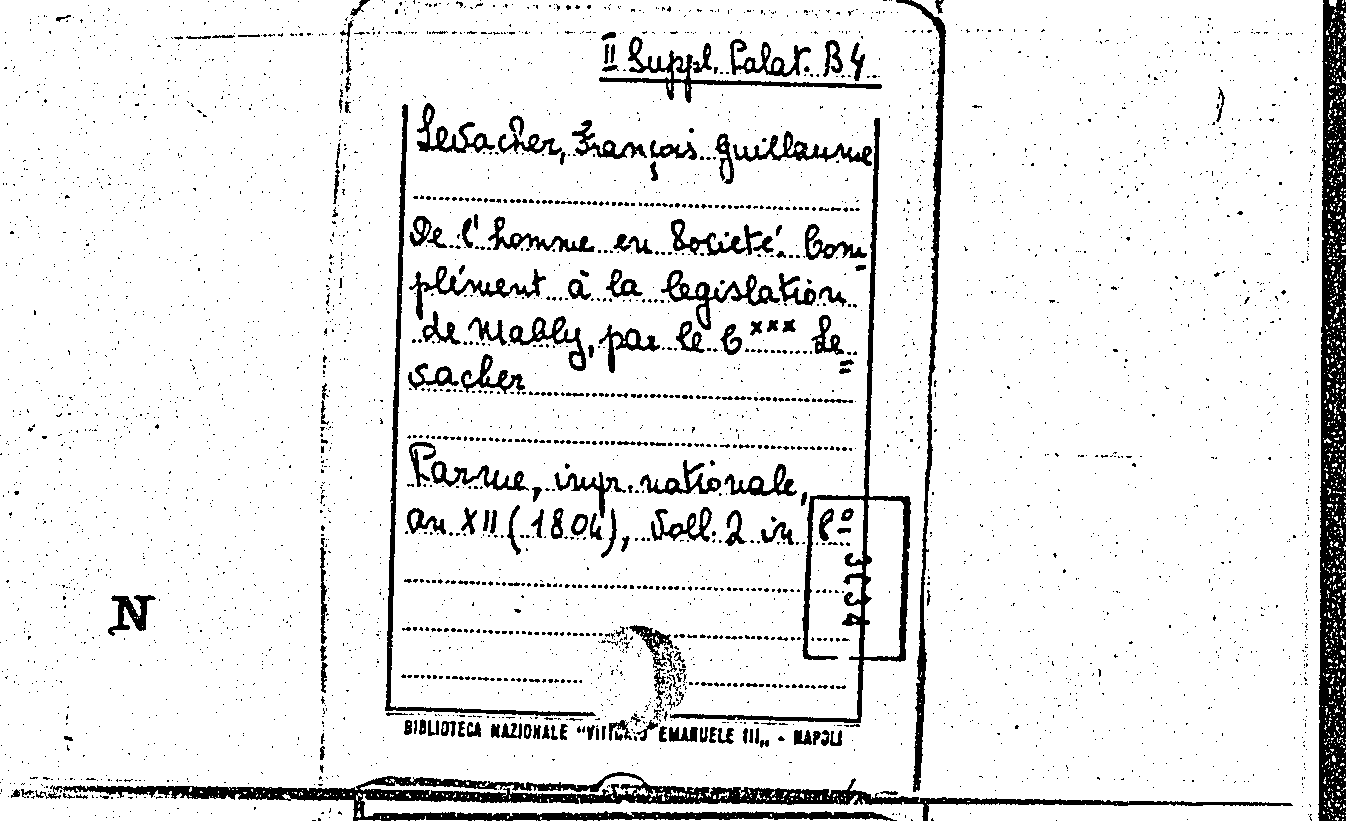 II Suppl. Palat. B 4
Levacher, François Guillaume
De l'homme en Societé. Com
plément à la legislation
de Mably, par le C*** Le
vacher
Parme, impr. nationale,
an XII (1804), Voll. 2 in 8º
N
BIBLIOTECA NAZIONALE "VITTORIO EMANUELE III„ - NAPOLI